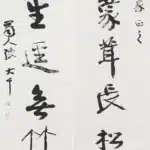 蒙茸長松
生逕無竹
蜀人張大千